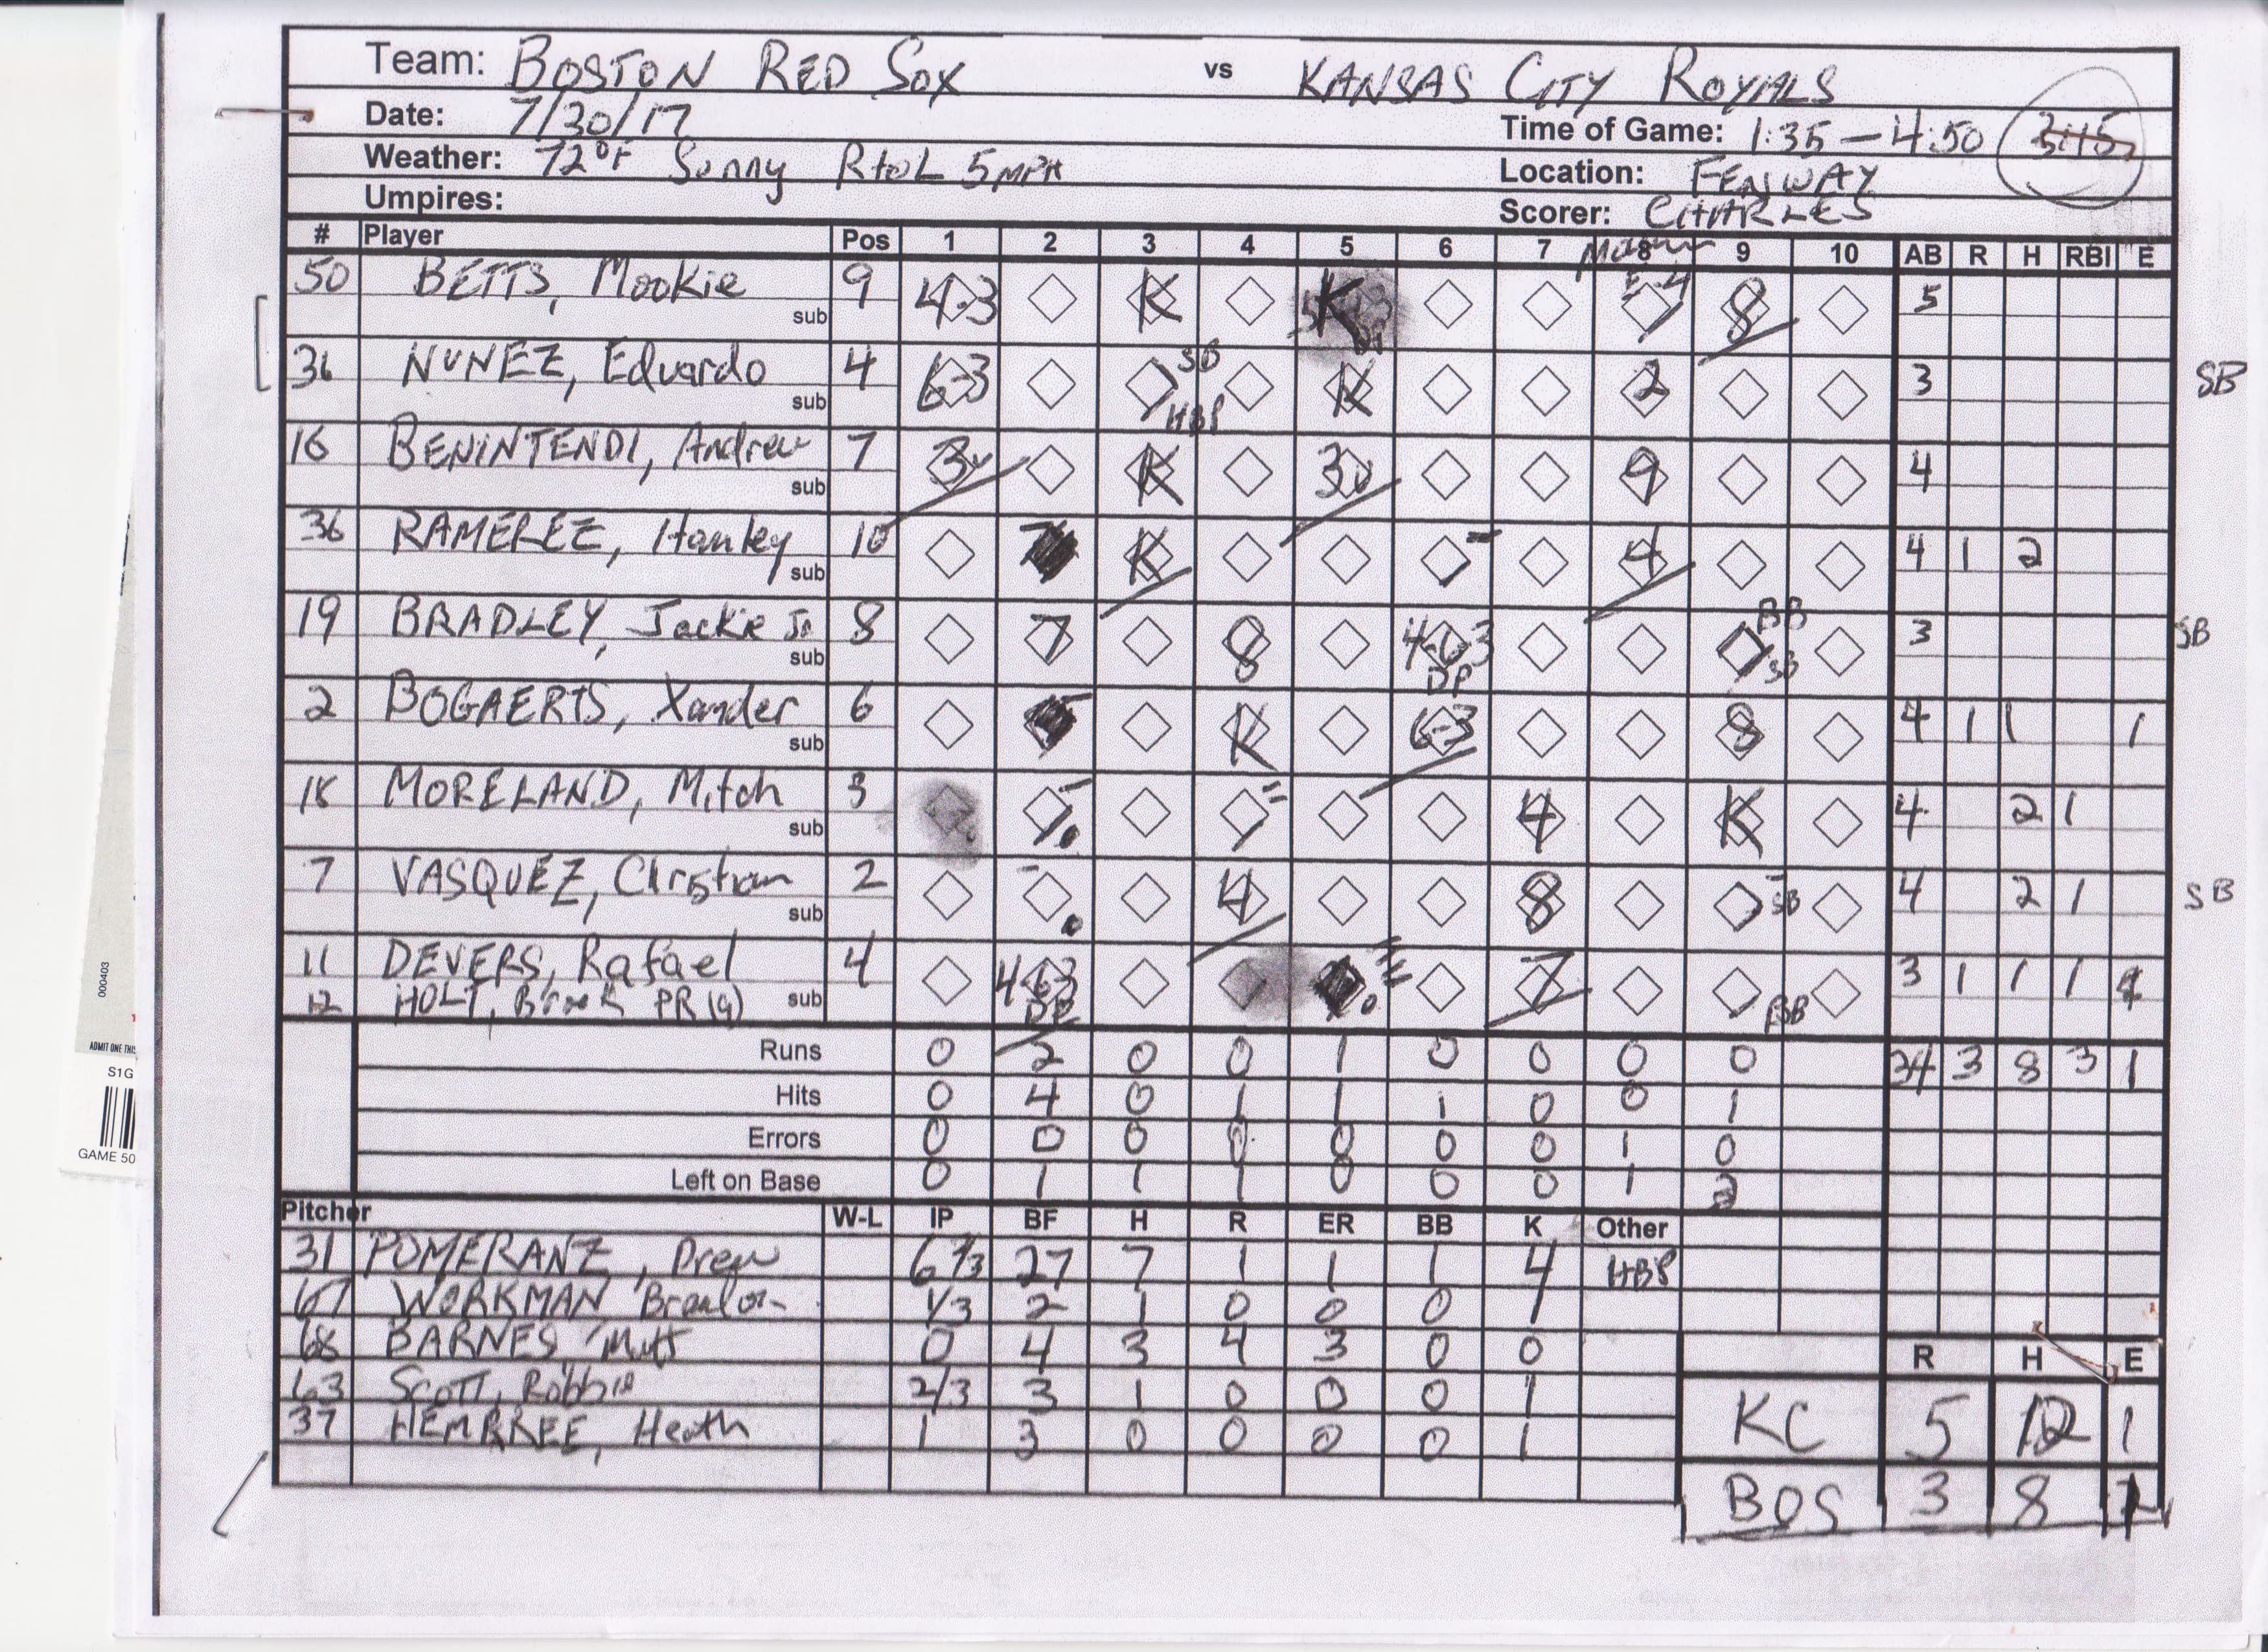 Team: BOSTON RED SOX vs KANSAS CITY ROYALS
Date: 7/30/17 Time of Game: 1:35 - 4:50 3:15
Weather: 72°F Sunny R to L 5MPH Location: FENWAY
Umpires: Scorer: CHARLES
# Player Pos 1 2 3 4 5 6 7 8 9 10 AB R H RBI E
50 BETTS, Mookie 9 4-3 K K E-4 8 5
sub
36 NUNEZ, Eduardo 4 6-3 SB HBP K 2 3 SB
sub
16 BENINTENDI, Andrew 7 3U K 3U 9 4
sub
36 RAMEREZ, Hanley 10 K 4 4 1 2
sub
19 BRADLEY, Jackie Jr 8 7 8 4-6-3 DP BB SB 3 SB
sub
2 BOGAERTS, Xander 6 K 6-3 8 4 1 1 1
sub
18 MORELAND, Mitch 3 4 K 4 2 1
sub
7 VASQUEZ, Christian 2 4 8 SB 4 2 1 SB
sub
11 DEVERS, Rafael 4 4-6-3 DP 7 BB 3 1 1 1
12 HOLT, Brock PR (9) sub
Runs 0 2 0 0 1 0 0 0 0 34 3 8 3 1
Hits 0 4 0 1 1 1 0 0 1
Errors 0 0 0 0 0 0 0 1 0
Left on Base 0 1 1 1 0 0 0 1 2
Pitcher W-L IP BF H R ER BB K Other
31 POMERANZ, Drew 6 2/3 27 7 1 1 1 4 HBP
67 WORKMAN, Brandon 1/3 2 1 0 0 0 1
68 BARNES, Matt 0 4 3 4 3 0 0
63 SCOTT, Robbie 2/3 3 1 0 0 0 1
37 HEMBREE, Heath 1 3 0 0 0 0 1
R H E
KC 5 12 1
BOS 3 8
000403
ADMIT ONE THI
S1G
GAME 50